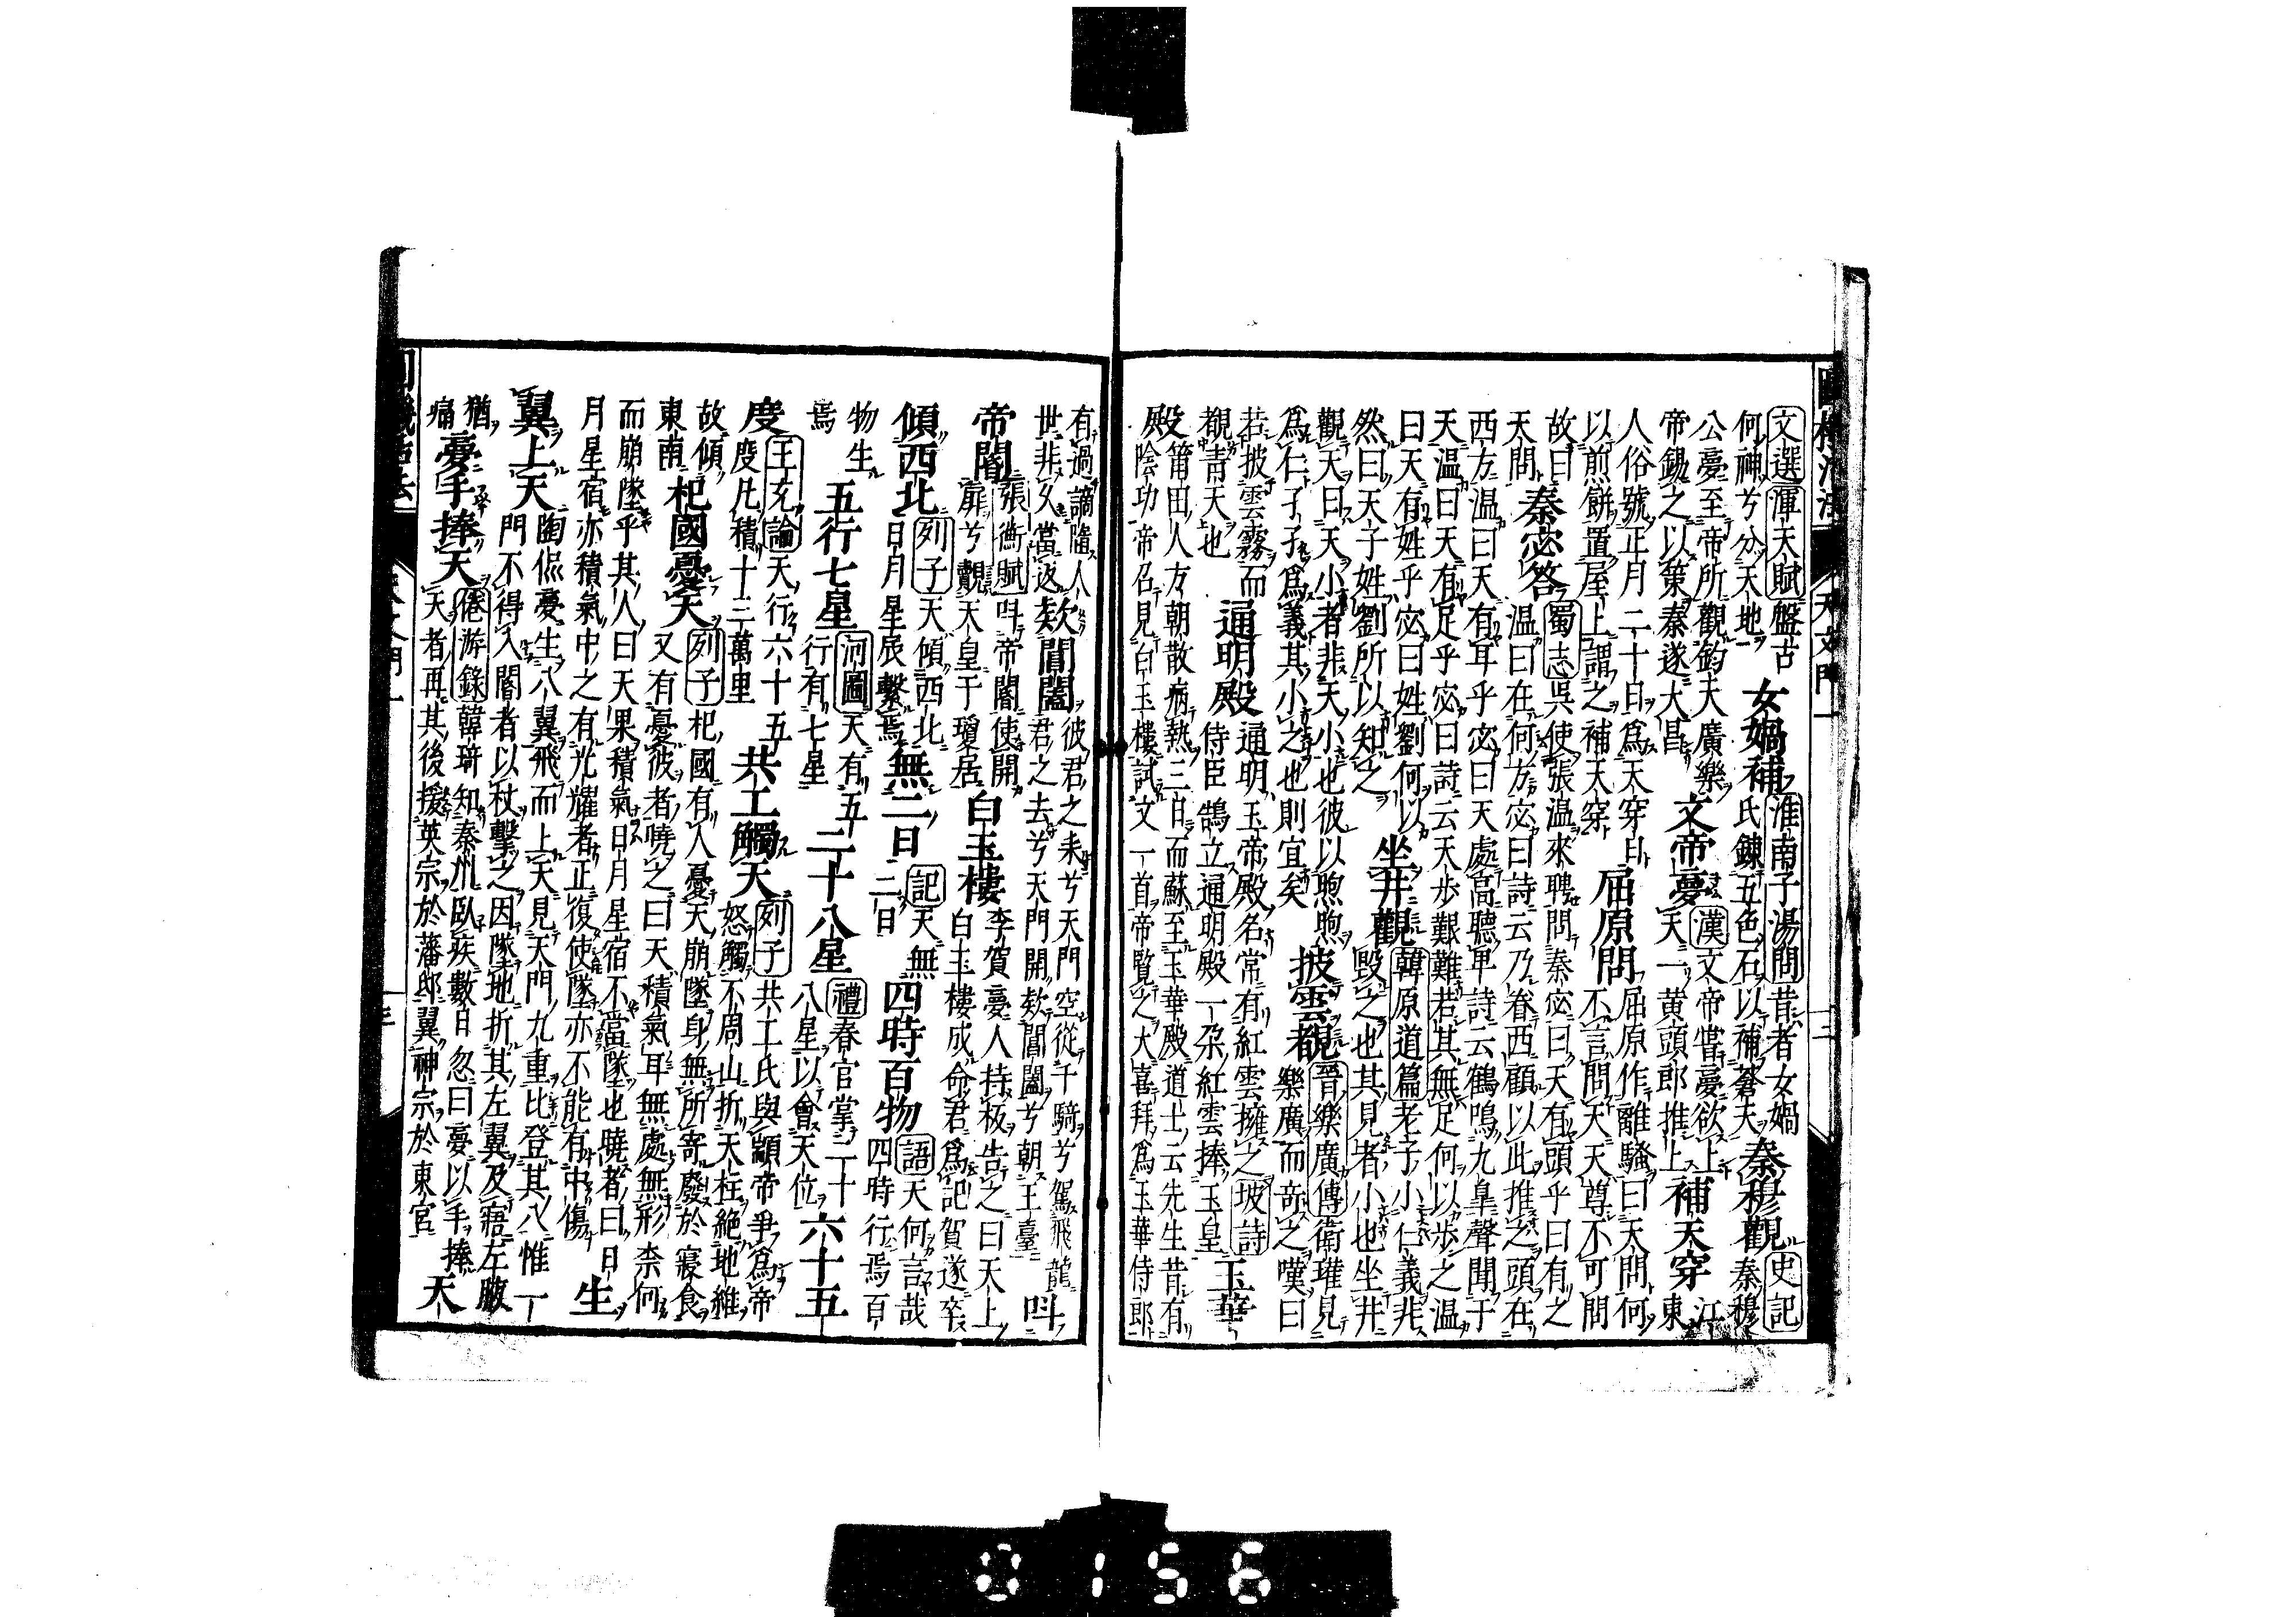 文選渾天賦盤古
何神兮分天地
女媧補
淮南子湯問昔者女媧
氏鍊五色石以補蒼天
秦穆觀
史記
秦穆
公夢至帝所觀鈞天廣樂
帝錫之以策秦遂大昌
文帝夢
漢文帝嘗夢欲上
天一黃頭郎推上
補天穿
江
東
人俗號正月二十日為天穿日
以煎餅置屋上謂之補天穿
屈原問
屈原作離騷曰天問何
不言問天天尊不可問
故曰
天問
秦宓答
蜀志吳使張温來聘問秦宓曰天有頭乎曰有之
温曰在何方宓曰詩云乃眷西顧以此推之頭在
西方温曰天有耳乎宓曰天處高聽卑詩云鶴鳴九皐聲聞于
天温曰天有足乎宓曰詩云天步艱難若其無足何以步之温
曰天有姓乎宓曰姓劉何以
然曰天子姓劉所以知之
坐井觀
韓原道篇老子小仁義非
毀之也其見者小也坐井
觀天曰天小者非天小也彼以煦煦
為仁孑孑為義其小之也則宜矣
披雲覩
晉樂廣傳衛瓘見
樂廣而奇之嘆曰
若披雲霧而
覩青天也
通明殿
通明玉帝殿名常有紅雲擁之坡詩
侍臣鵠立通明殿一朶紅雲捧玉皇
玉華
殿
莆田人方朝散病熱三日而蘇至玉華殿道士云先生昔有
陰功帝召見白玉樓試文一首帝覧之大喜拜為玉華侍郎
有過謫隨人
世非久當返
欻閶闔
彼君之来兮天門空從千騎兮駕飛龍
君之去兮天門開欻閶闔兮朝玉臺
叫
帝閽
張衡賦叫帝閽使開
扉兮覿天皇于瓊居
白玉樓
李賀夢人持板告之曰天上
白玉樓成命君為記賀遂卒
傾西北
列子天傾西北
日月星辰繫焉
無二日
記天無
二日
四時百物
語天何言哉
四時行焉百
物生
焉
五行七星
河圖天有五
行有七星
二十八星
禮春官掌二十
八星以會天位
六十五
度
王充論天行六十五
度凡積十三萬里
共工觸天
列子共工氏與顓帝爭為帝
怒觸不周山折天柱絶地維
故傾
東南
杞國憂天
列子杞國有人憂天崩墜身無所寄廢於寝食
又有憂彼者曉之曰天積氣耳無處無形柰何
而崩墜乎其人曰天果積氣日月星宿不當墜也曉者曰日
月星宿亦積氣中之有光耀者正復使墜亦不能有中傷
生
翼上天
陶侃夢生八翼飛而上天見天門九重比登其八惟一
門不得入閽者以杖擊之因墜地折其左翼及寤左腋
猶
痛
夢手捧天
倦游錄韓琦知秦州臥疾數日忽曰夢以手捧
天者再其後援英宗於藩邸翼神宗於東宮
天
0156